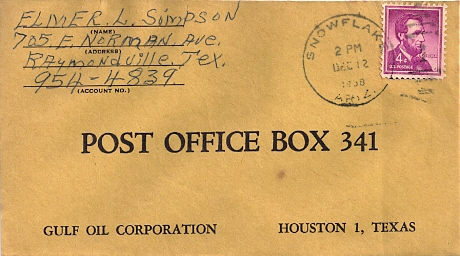 ELMER. L. SIMPSON
(NAME)
705 E. NORMAN Ave.
(ADDRESS)
RAYMONDVILLE, Tex.
954-4839
(ACCOUNT NO.)
SNOWFLAKE
2 PM
DEC 12
1958
ARIZ.
4¢
U.S. POSTAGE
POST OFFICE BOX 341
GULF OIL CORPORATION HOUSTON 1, TEXAS